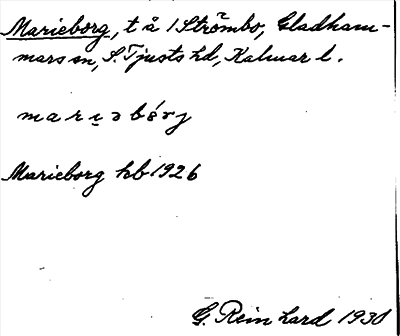 Marieborg, t å 1 Strömbo, Gladham-
mars sn, S. Tjusts hd, Kalmar l.
marɩ̱əbórj
Marieborg kb 1926
G. Reinhard 1930